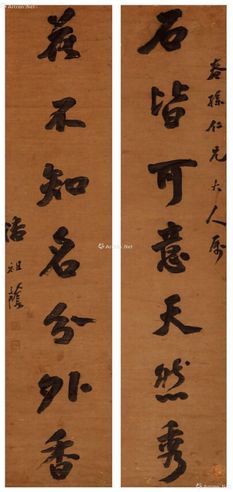 春孫仁兄大人屬
石皆可意天然秀
花不知名分外香
潘祖蔭
Artron.Net
Artron.Net